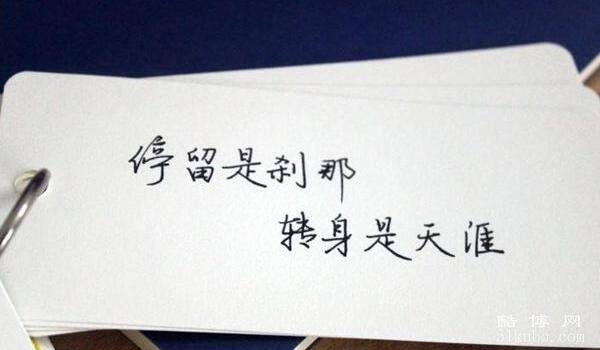 停留是刹那
转身是天涯
酷博网
51kubo.com